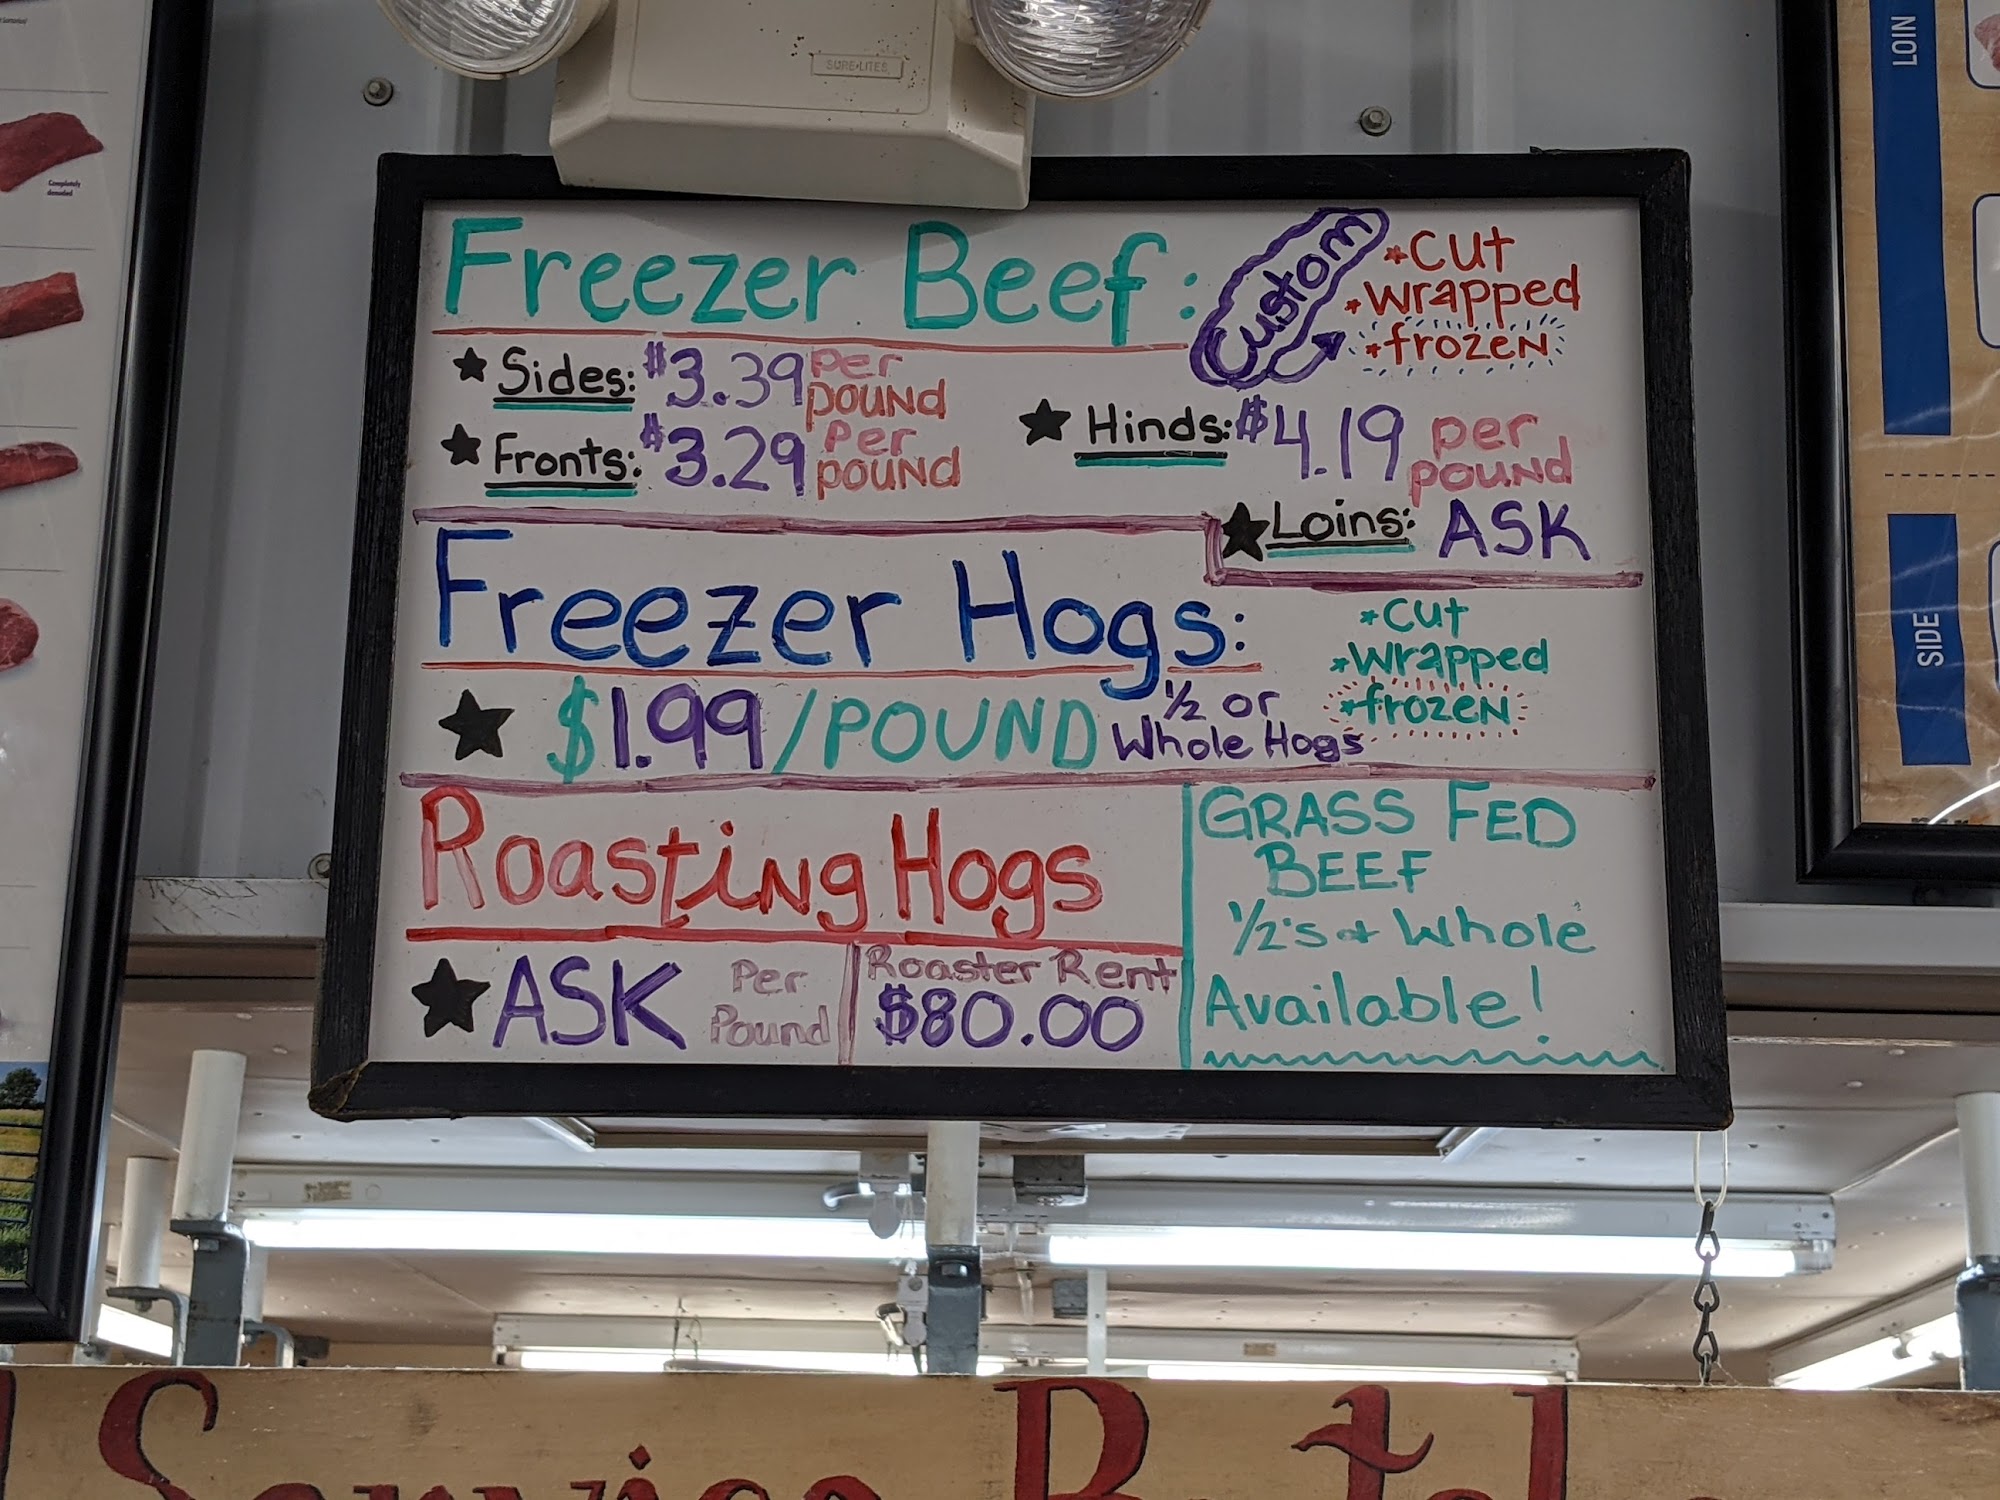 SURE-LITES
Completely
denuded
LOIN
SIDE
Freezer Beef:
Custom
*Cut
*Wrapped
*frozen
★ Sides: $3.39 per pound
★ Fronts: $3.29 per pound
★ Hinds: $4.19 per pound
★ Loins: ASK
Freezer Hogs:
*Cut
*Wrapped
*frozen
★ $1.99/POUND 1/2 or Whole Hogs
Roasting Hogs
★ ASK Per Pound
Roaster Rent
$80.00
GRASS FED
BEEF
1/2's + Whole
Available!